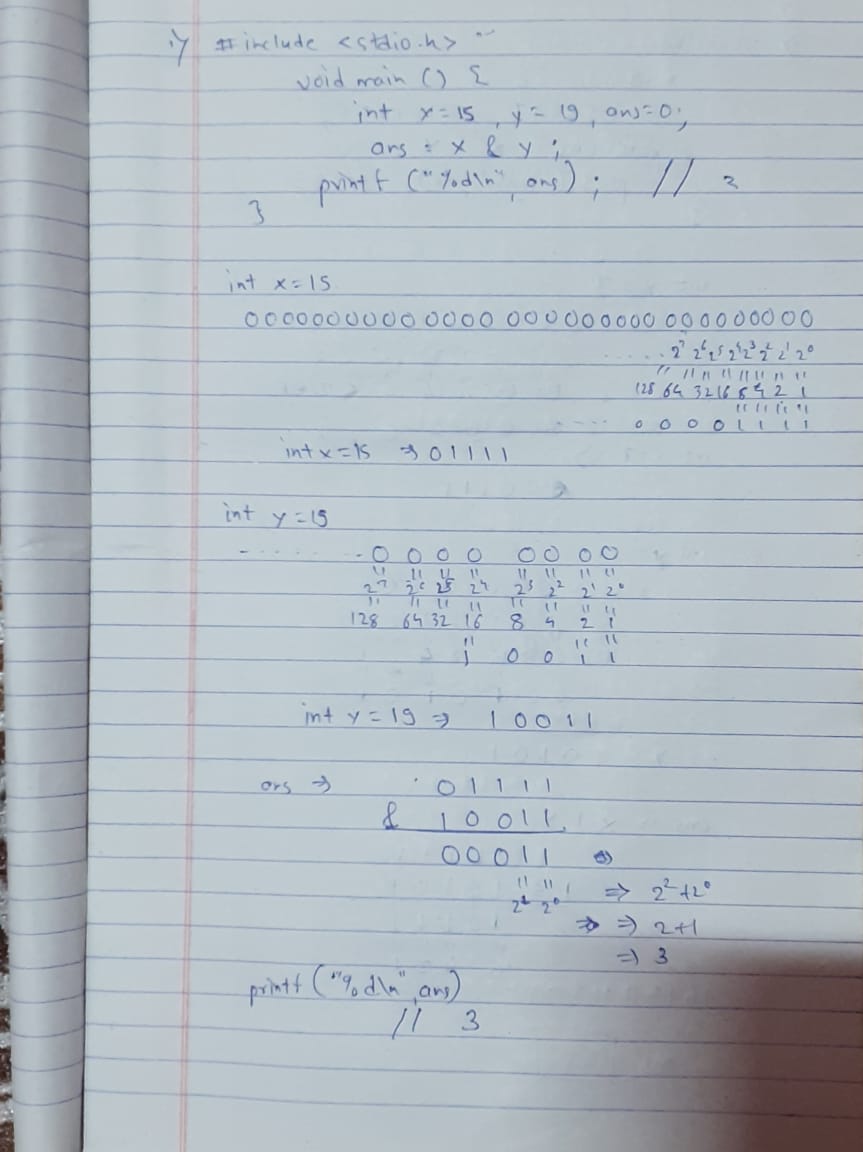 1) #include <stdio.h>
void main () {
int x=15, y=19, ans=0;
ans = x & y;
printf ("%d\n", ans); // 3
}
int x=15
0000000000 0000 000000000 000000000
....... 2⁷ 2⁶ 2⁵ 2⁴ 2³ 2² 2¹ 2⁰
" " " " " " " "
128 64 32 16 8 4 2 1
" " " "
.... 0 0 0 0 1 1 1 1
int x=15 ⇒ 01111
int y=19
- ...... 0 0 0 0 0 0 0 0
" " " " " " " "
2⁷ 2⁶ 2⁵ 2⁴ 2³ 2² 2¹ 2⁰
" " " " " " " "
128 64 32 16 8 4 2 1
" " "
1 0 0 1 1
int y=19 ⇒ 1 0 0 1 1
ans ⇒ 0 1 1 1 1
& 1 0 0 1 1
0 0 0 1 1 ⇒
" " ⇒ 2²+2⁰
2⁰ ⇒ ⇒ 2+1
⇒ 3
printf ("%d\n", ans)
// 3